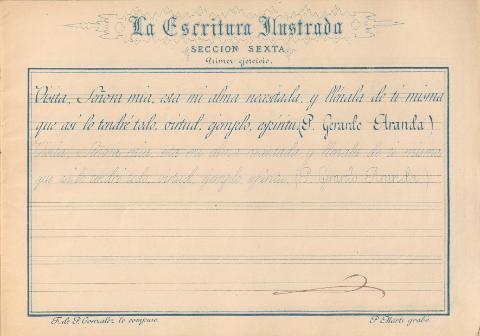 La Escritura Ilustrada
SECCION SEXTA.
Primer ejercicio.
Visita, Señora mia, esta mi alma necesitada, y llénala de ti misma
que asi lo tendré todo, virtud, ejemplo, espiritu, (P. Gerardo Aranda)
Visita, Señora mia, esta mi alma necesitada y llénala de ti misma
que asi lo tendré todo, virtud, ejemplo, espiritu, (P. Gerardo Aranda)
F. de P. Gonzalez lo compuso.
P. Marti grabó.